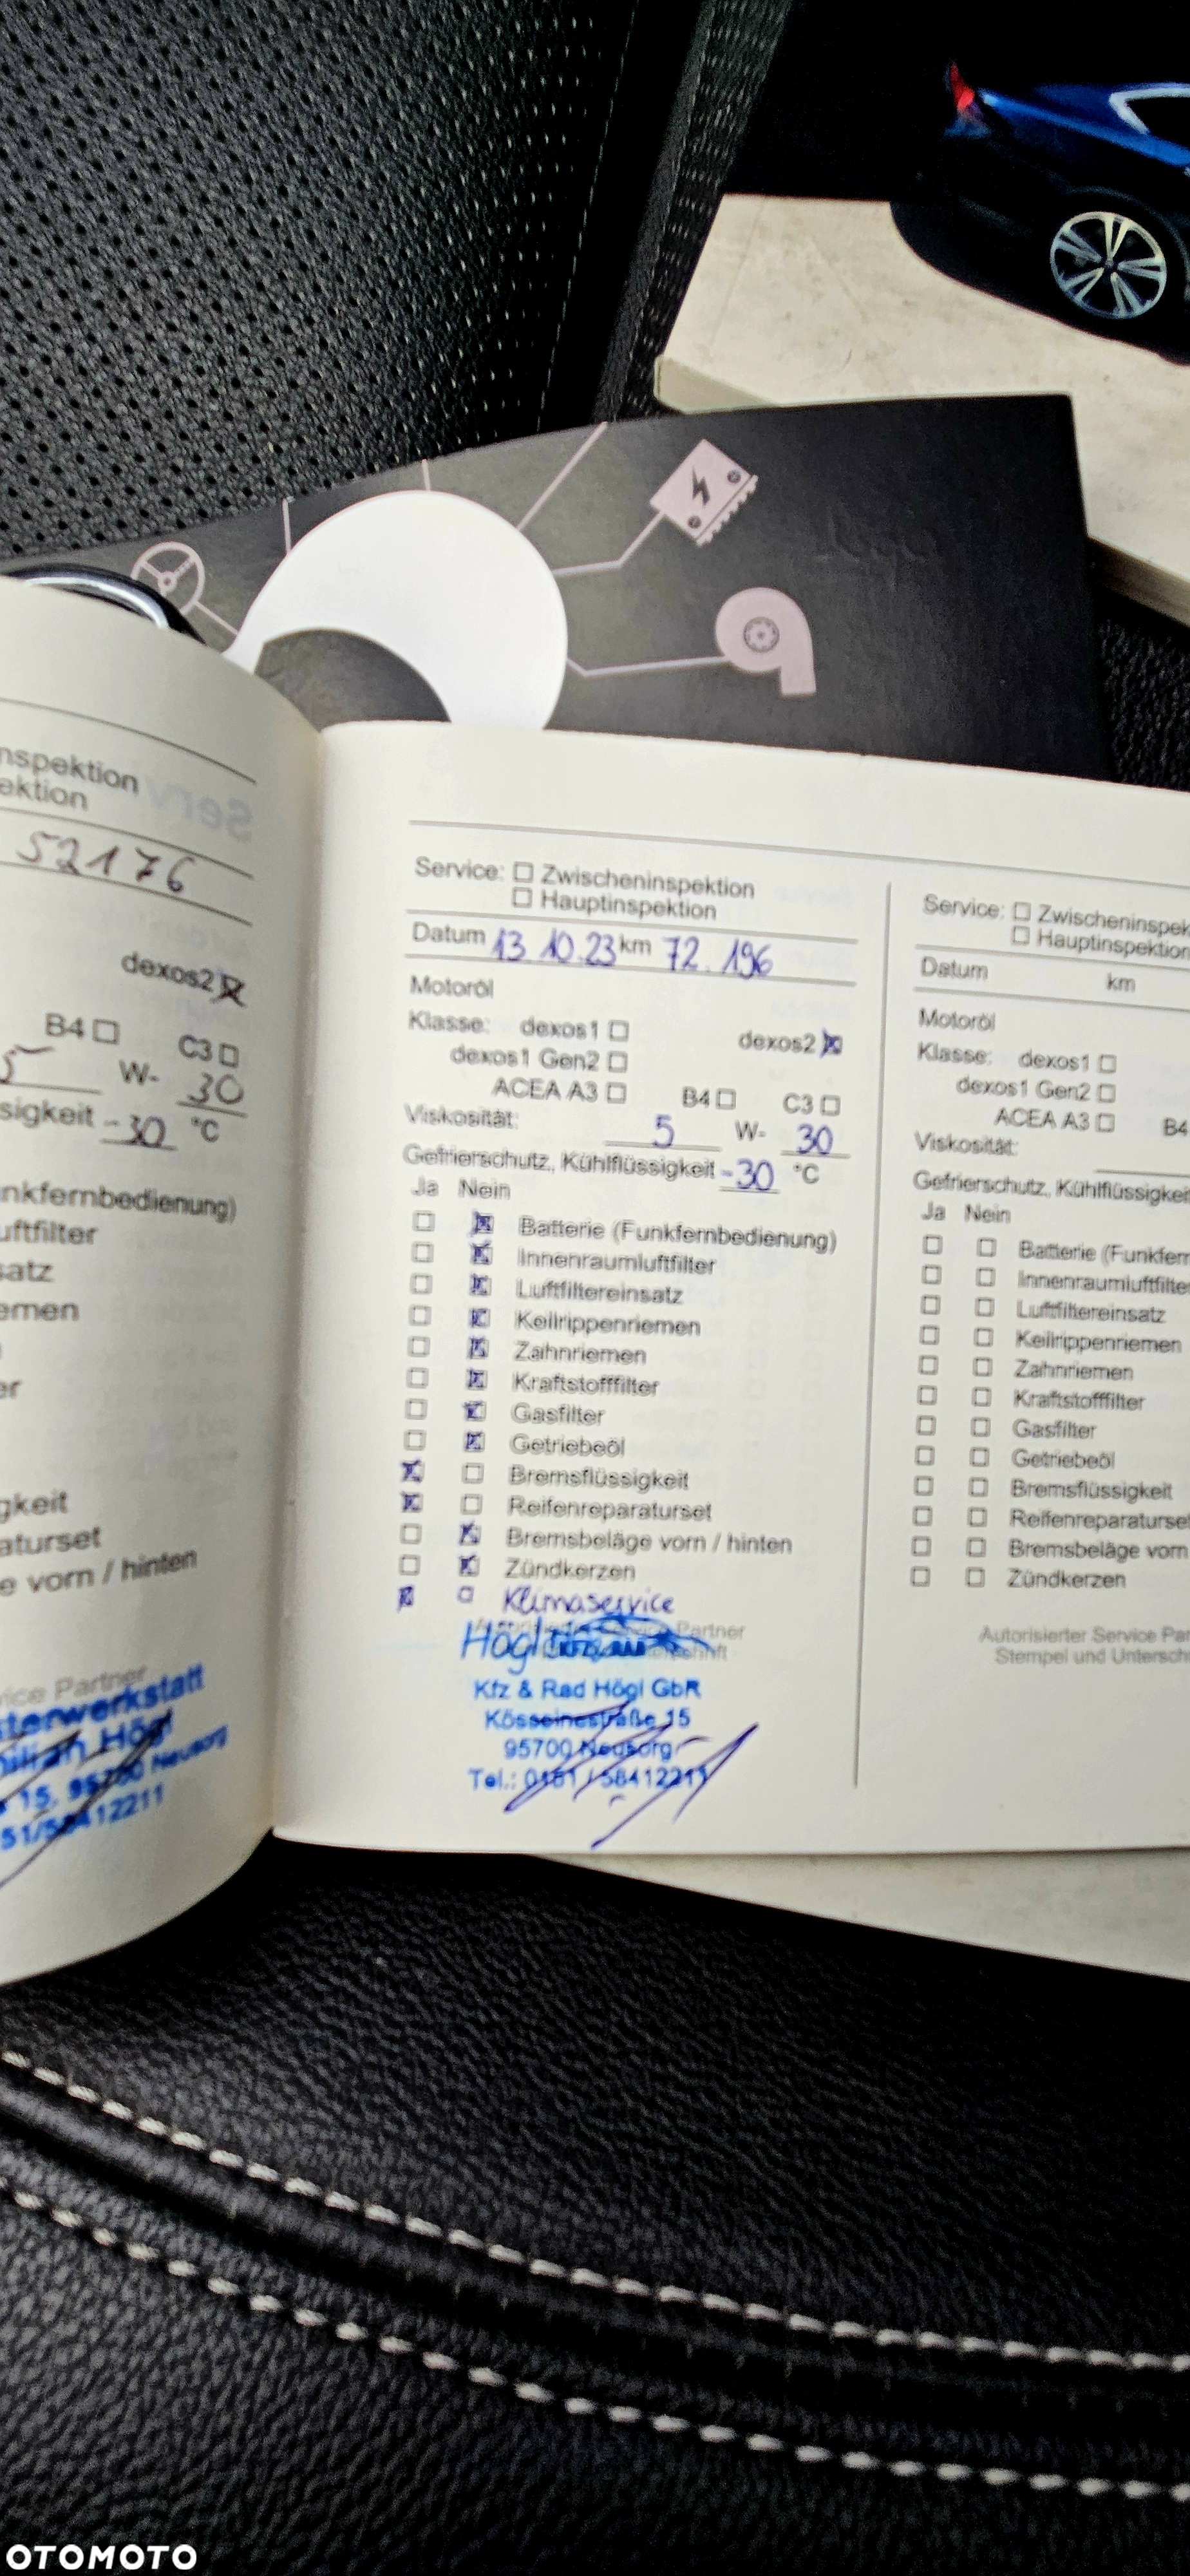 nspektion
ektion
52176
dexos2
B4 C3
5 W- 30
sigkeit -30 °C
nkfernbedienung)
uftfilter
satz
emen
er
gkeit
aturset
e vorn / hinten
vice Partner
sterwerkstatt
ilian Högl
15, 95700 Neusorg
51/58412211
Service: Zwischeninspektion
Hauptinspektion
Datum 13.10.23 km 72.196
Motoröl
Klasse: dexos1 dexos2
dexos1 Gen2
ACEA A3 B4 C3
Viskosität: 5 W- 30
Gefrierschutz, Kühlflüssigkeit -30 °C
Ja Nein
Batterie (Funkfernbedienung)
Innenraumluftfilter
Luftfiltereinsatz
Keilrippenriemen
Zahnriemen
Kraftstofffilter
Gasfilter
Getriebeöl
Bremsflüssigkeit
Reifenreparaturset
Bremsbeläge vorn / hinten
Zündkerzen
Klimaservice
Partner
Högl
Kfz & Rad Högl GbR
Kösseinestraße 15
95700 Neusorg
Tel.: 0151 / 58412211
Service: Zwischeninspek
Hauptinspektion
Datum km
Motoröl
Klasse: dexos1
dexos1 Gen2
ACEA A3 B4
Viskosität:
Gefrierschutz, Kühlflüssigkeit
Ja Nein
Batterie (Funkfern
Innenraumluftfilter
Luftfiltereinsatz
Keilrippenriemen
Zahnriemen
Kraftstofffilter
Gasfilter
Getriebeöl
Bremsflüssigkeit
Reifenreparaturset
Bremsbeläge vorn
Zündkerzen
Autorisierter Service Par
Stempel und Unterschr
OTOMOTO